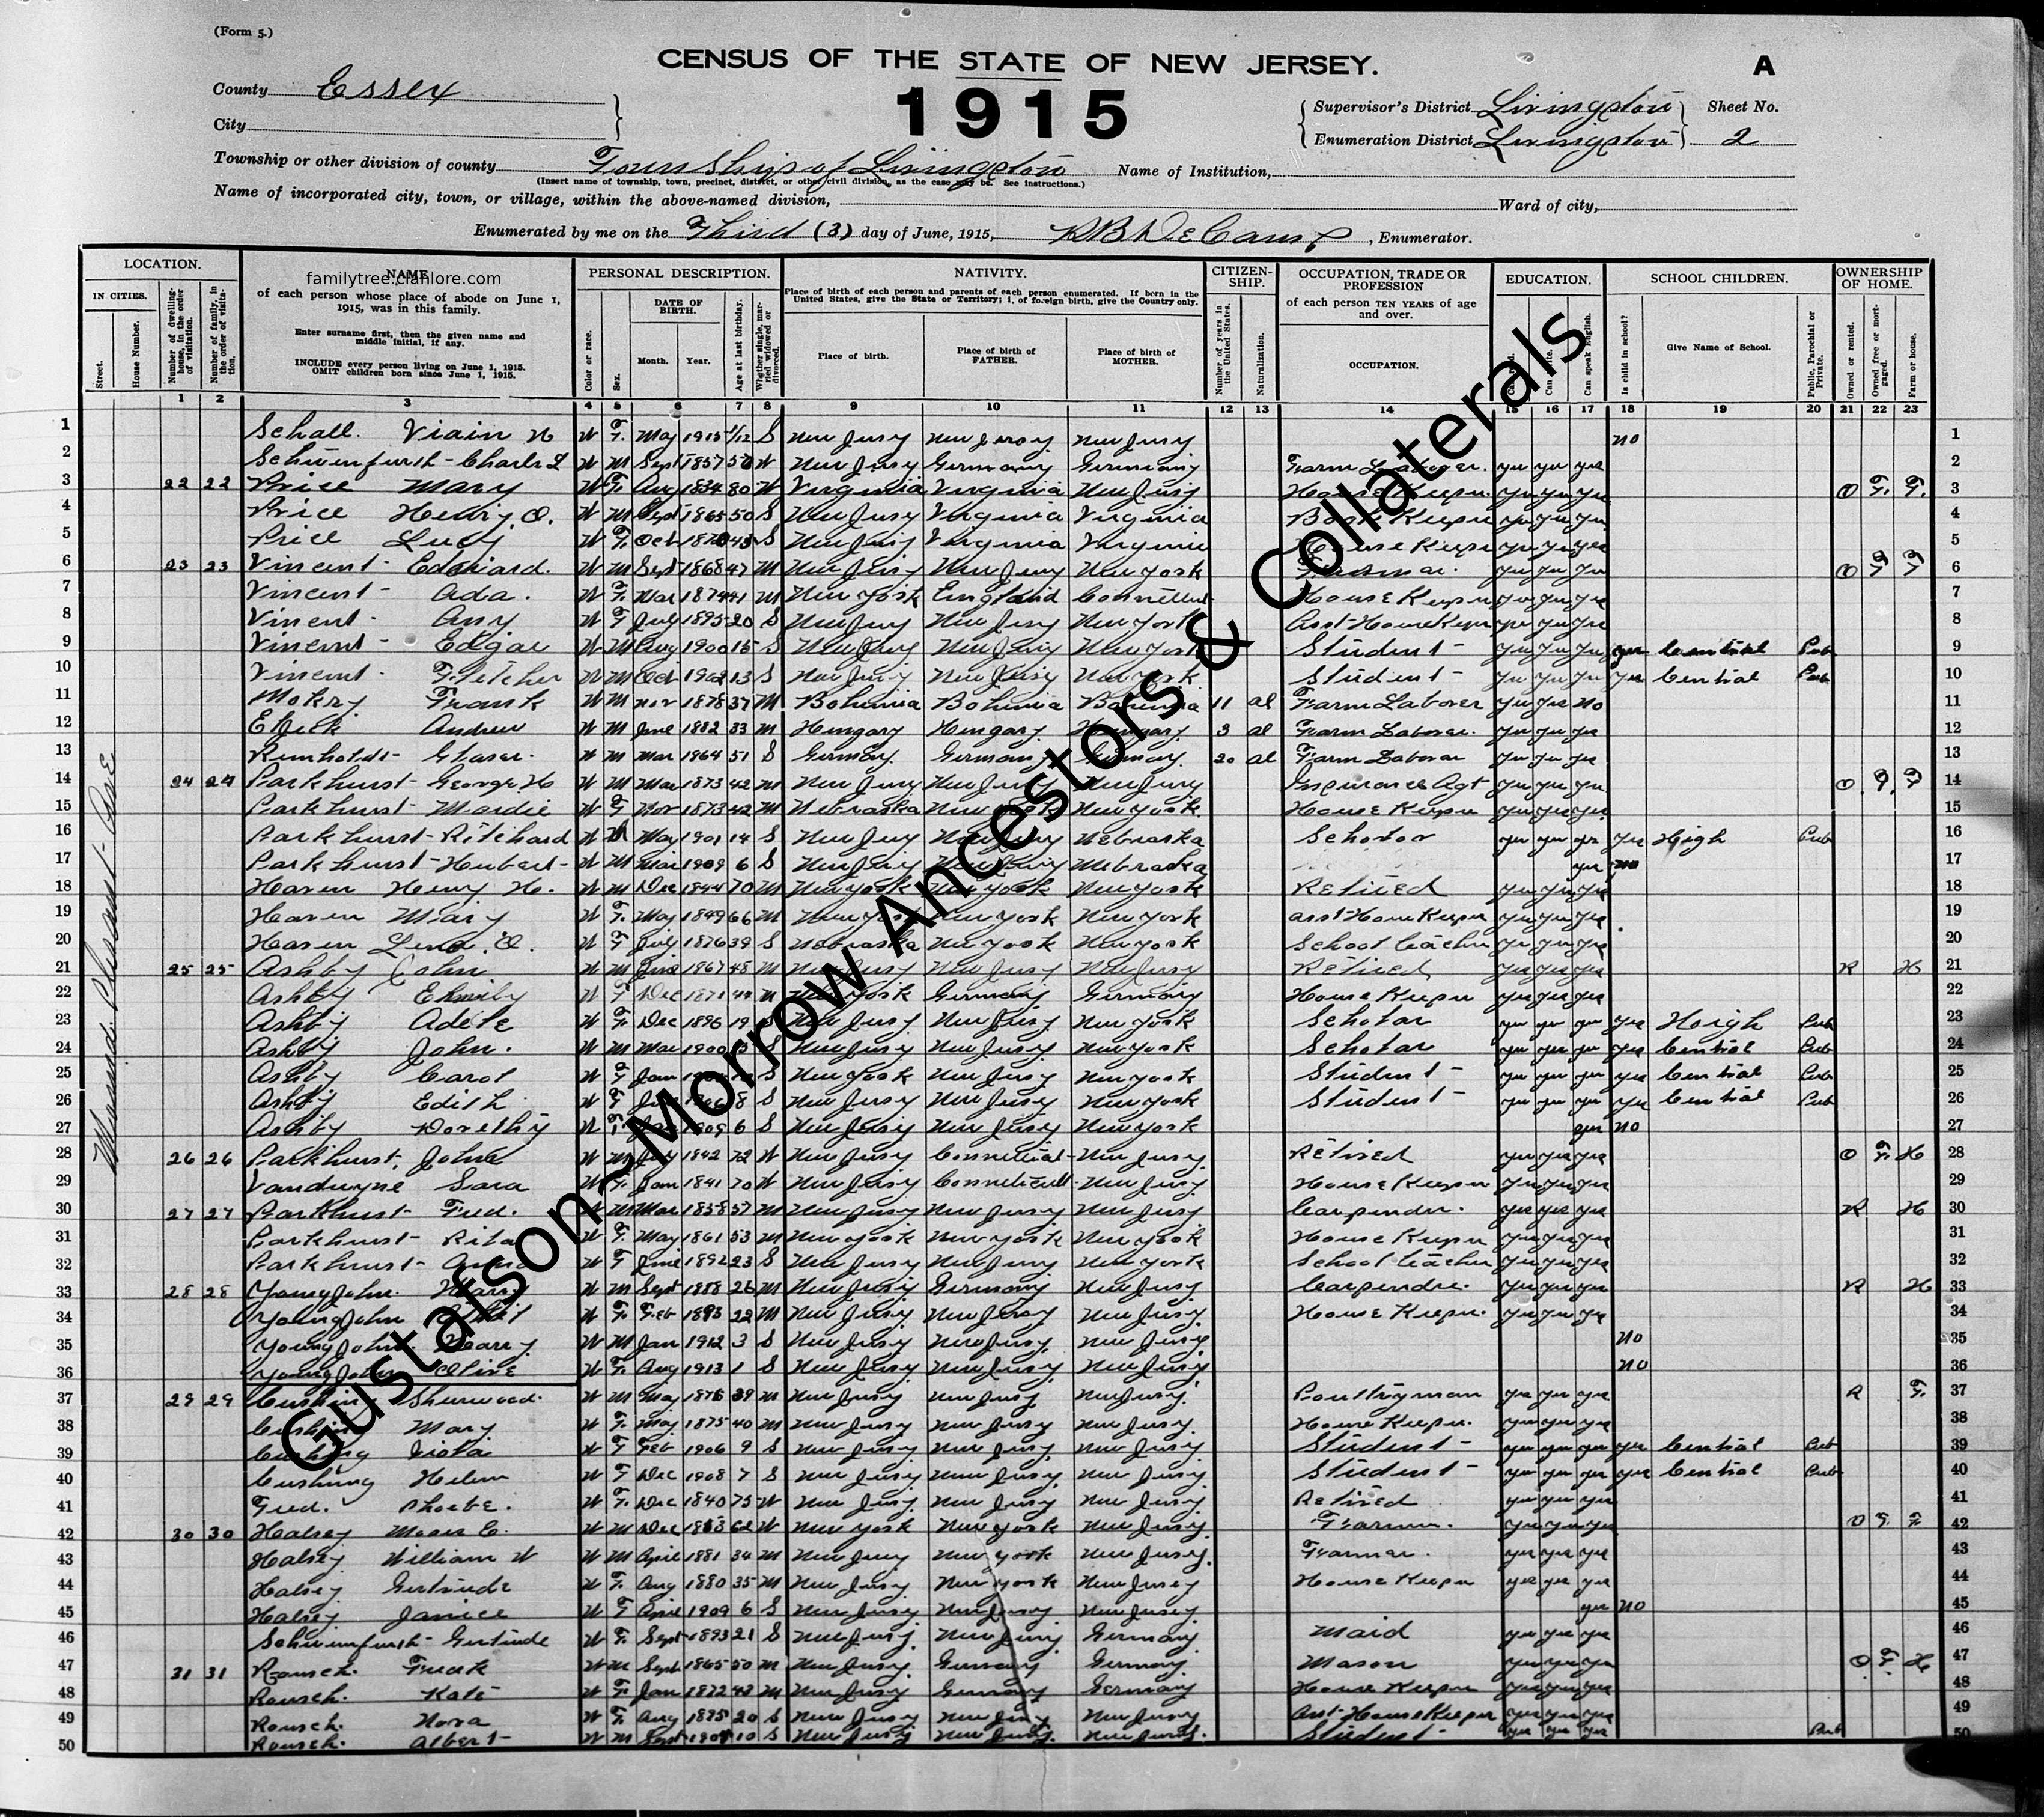 (Form 5.)
CENSUS OF THE STATE OF NEW JERSEY.
A
1915
County Essex
City
Supervisor's District Livingston
Sheet No.
Enumeration District Livingston 2
Township or other division of county Township of Livingston Name of Institution,
(Insert name of township, town, precinct, district, or other civil division, as the case may be. See instructions.)
Name of incorporated city, town, or village, within the above-named division, Ward of city,
Enumerated by me on the Third (3) day of June, 1915, , Enumerator.
LOCATION.
IN CITIES.
Street.
House Number.
Number of dwelling-house, in the order of visitation.
Number of family, in the order of visitation.
NAME
familytree.clanlore.com
of each person whose place of abode on June 1, 1915, was in this family.
Enter surname first, then the given name and middle initial, if any.
INCLUDE every person living on June 1, 1915.
OMIT children born since June 1, 1915.
PERSONAL DESCRIPTION.
Color or race.
Sex.
DATE OF BIRTH.
Month. Year.
Age at last birthday.
Whether single, married widowed or divorced.
NATIVITY.
Place of birth of each person and parents of each person enumerated. If born in the United States, give the State or Territory; i, of foreign birth, give the Country only.
Place of birth.
Place of birth of FATHER.
Place of birth of MOTHER.
CITIZENSHIP.
Number of years in the United States.
Naturalization.
OCCUPATION, TRADE OR PROFESSION
of each person TEN YEARS of age and over.
OCCUPATION.
EDUCATION.
Can speak English.
SCHOOL CHILDREN.
Is child in school?
Give Name of School.
Public, Parochial or Private.
OWNERSHIP OF HOME.
Owned or rented.
Owned free or mortgaged.
Farm or house.
1 2 3 4 5 6 7 8 9 10 11 12 13 14 15 16 17 18 19 20 21 22 23
1 Schall W F. May 1915 1/12 S New Jersey New Jersey New Jersey no 1
2 Schwenfurth - Charls L W M Sept 1857 W New Jersey Germany Germany Farm Laborer. yes yes yes 2
3 22 22 Price Mary W F. Aug 1834 80 W Virginia Virginia New Jersey House Keeper yes yes yes O F. F. 3
4 Price Henry O. W M Sept 1865 50 S New Jersey Virginia Virginia Book Keeper yes yes yes 4
5 Price Lucy W F. Oct S New Jersey Virginia Virginia House Keeper yes yes yes 5
6 23 23 Vincent - Edward. W M Sept 1868 47 M New Jersey New Jersey New York yes yes yes O F F 6
7 Vincent - Ada. W F. Mar 1874 41 M New York England House Keeper yes yes yes 7
8 Vincent - Amy W F July 1895 20 S New Jersey New Jersey New York Asst-House Keeper yes yes yes 8
9 Vincent - Edgar W M Aug 1900 15 S New Jersey New Jersey New York Student - yes yes yes yes Central Pub 9
10 Vincent - Fletcher W M Oct 1902 13 S New Jersey New Jersey New York Student - yes yes yes yes Central Pub 10
11 Mokry Frank W M Nov 1878 37 M Bohemia Bohemia Bohemia 11 al Farm Laborer yes yes no 11
12 Andrew W M June 1882 33 M Hungary Hungary Hungary. 3 al Farm Laborer. yes yes yes 12
13 Glaser. W M Mar 1964 51 S Germany. Germany Germany. 20 al Farm Laborer yes yes yes 13
14 24 24 Parkhurst - George H W M Mar 1873 42 M New Jersey New Jersey New Jersey Insurance Agt yes yes yes O F F 14
15 Parkhurst - W F Nov 1873 42 M Nebraska New York New York. House Keeper yes yes yes 15
16 Parkhurst - Ritchard W M May 1901 14 S New Jersey New Jersey Nebraska yes yes yes yes High Pub 16
17 Parkhurst - Hubert - W M Mar 1909 6 S New Jersey New Jersey Nebraska yes no 17
18 Haven Henry H. W M Dec 1844 70 M New York New York New York Retired yes yes yes 18
19 Haven Mary W F. May 1849 66 M New York New York New York asst House Keeper yes yes yes 19
20 Haven Lena. O. W F July 1876 39 S Nebraska New York New York School Teacher yes yes yes 20
21 25 25 Ashby John W M June 1867 48 M New Jersey New Jersey New Jersey Retired yes yes yes R H 21
22 Ashby W F Dec 1871 44 M New York Germany Germany House Keeper yes yes yes 22
23 Ashby Adele W F. Dec 1896 19 S New Jersey New Jersey New York Scholar yes yes yes yes High Pub 23
24 Ashby John. W M Mar 1900 15 S New Jersey New Jersey New York Scholar yes yes yes yes Central Pub 24
25 Ashby Carol W F Jan S New York New Jersey New York Student - yes yes yes yes Central Pub 25
26 Ashby Edith W F 8 S New Jersey New Jersey New York Student - yes yes yes yes Central Pub 26
27 Ashby Dorethy W F 1909 6 S New Jersey New Jersey New York yes no 27
28 26 26 Parkhurst, John W M 1842 72 W New Jersey Connecticut New Jersey Retired yes yes yes O F. H 28
29 Vanduyne Sara W F. Jan 1841 70 W New Jersey Connecticutt New Jersey House Keeper yes yes yes 29
30 27 27 Parkhurst - Fred. W M Mar 1858 57 M New Jersey New Jersey New Jersey Carpender. yes yes yes R H 30
31 Parkhurst - Rita W F. May 1861 53 M New York New York New York House Keeper yes yes yes 31
32 Parkhurst - W F June 1892 23 S New Jersey New Jersey New York School Teacher yes yes yes 32
33 28 28 YoungJohn. Harry W M Sept 1888 26 M New Jersey Germany New Jersey Carpendre. yes yes yes R H 33
34 YoungJohn W F. Feb 1893 22 M New Jersey New Jersey New Jersey. House Keeper. yes yes yes 34
35 YoungJohn. Hearry W M Jan 1912 3 S New Jersey New Jersey New Jersey no 35
36 YoungJohn Olive W F. Aug 1913 1 S New Jersey New Jersey New Jersey no 36
37 29 29 Sherwood. W M May 1876 39 M New Jersey New Jersey New Jersey. Poultryman yes yes yes R F. 37
38 Mary W F. May 1875 40 M New Jersey New Jersey New Jersey. House Keeper. yes yes yes 38
39 Cushing Viola W F Feb 1906 9 S New Jersey New Jersey New Jersey. Student - yes yes yes yes Central Pub 39
40 Cushing Helen W F Dec 1908 7 S New Jersey New Jersey New Jersey Student - yes yes yes yes Central Pub 40
41 Phoebe. W F. Dec 1840 75 W New Jersey New Jersey New Jersey Retired yes yes yes 41
42 30 30 Halsey W M Dec 1853 62 W New York New York New Jersey. Farmer. yes yes yes O F. F 42
43 Halsey William W W M April 1881 34 M New Jersey New York New Jersey. Farmer. yes yes yes 43
44 Halsey Gertrude W F. Aug 1880 35 M New Jersey New York New Jersey House Keeper yes yes yes 44
45 Halsey Janice W F April 1909 6 S New Jersey New Jersey New Jersey yes no 45
46 Schwenfurth - Gertrude W F. Sept 1893 21 S New Jersey New Jersey Germany Maid yes yes yes 46
47 31 31 Rousch. Frank W M Sept 1865 50 M New Jersey. Germany Germany. Mason yes yes yes O F. H 47
48 Rousch. Kate W F. Jan 1872 43 M New Jersey Germany Germany House Keeper yes yes yes 48
49 Rousch. Nora W F. Aug 1895 20 S New Jersey New Jersey New Jersey Asst-House Keeper yes yes yes 49
50 Rousch. Albert - W M Sept 10 S New Jersey New Jersey. New Jersey. Student - yes yes yes Pub 50
Gustafson-Morrow Ancestors & Collaterals